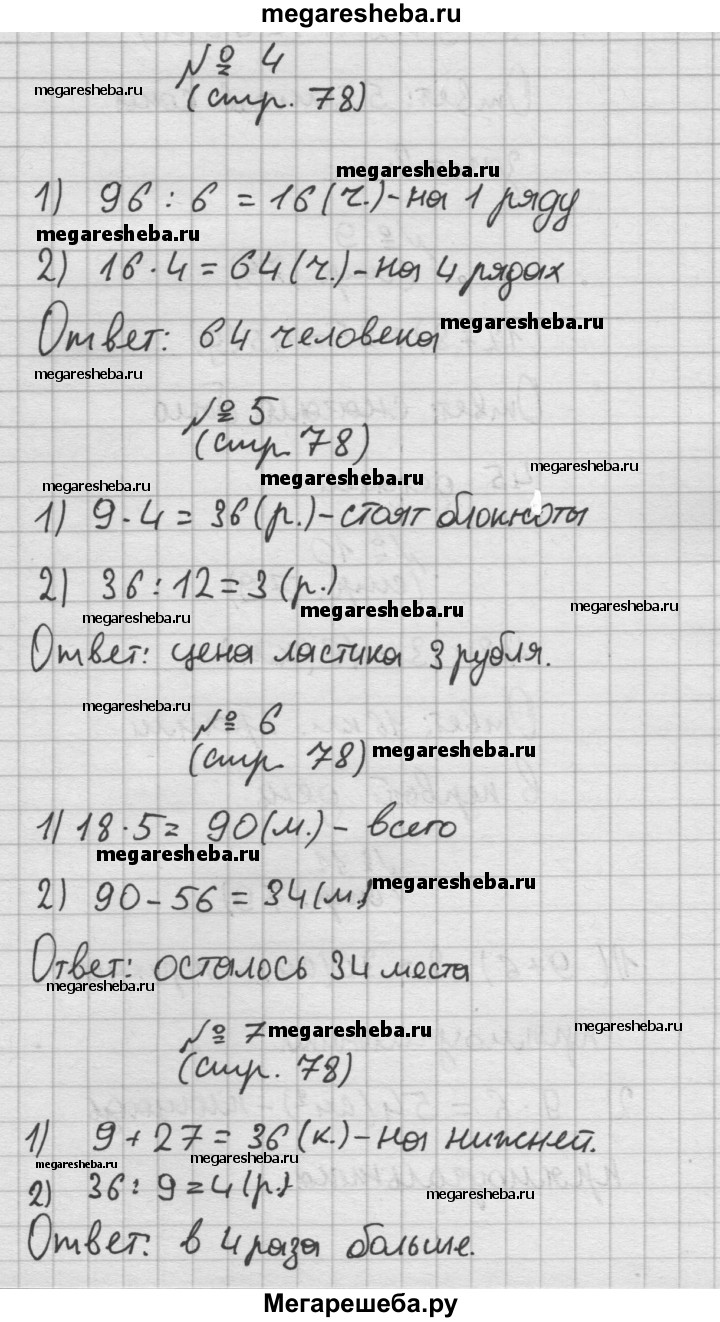 megaresheba.ru
№ 4
megaresheba.ru
(стр. 78)
megaresheba.ru
1) 96 : 6 = 16 (ч.) - на 1 ряду
megaresheba.ru
2) 16 · 4 = 64 (ч.) - на 4 рядах
Ответ: 64 человека
megaresheba.ru
megaresheba.ru
№ 5
(стр. 78)
megaresheba.ru
megaresheba.ru
megaresheba.ru
1) 9 · 4 = 36 (р.) - стоят блокноты
2) 36 : 12 = 3 (р.)
megaresheba.ru
megaresheba.ru
megaresheba.ru
Ответ: цена ластика 3 рубля.
megaresheba.ru
№ 6
(стр. 78)
megaresheba.ru
1) 18 · 5 = 90 (м.) - всего
megaresheba.ru
2) 90 - 56 = 34 (м.)
megaresheba.ru
Ответ: осталось 34 места
megaresheba.ru
№ 7
megaresheba.ru
megaresheba.ru
(стр. 78)
1) 9 + 27 = 36 (к.) - на нижней.
megaresheba.ru
megaresheba.ru
2) 36 : 9 = 4 (р.)
megaresheba.ru
Ответ: в 4 раза больше.
Мегарешеба.ру